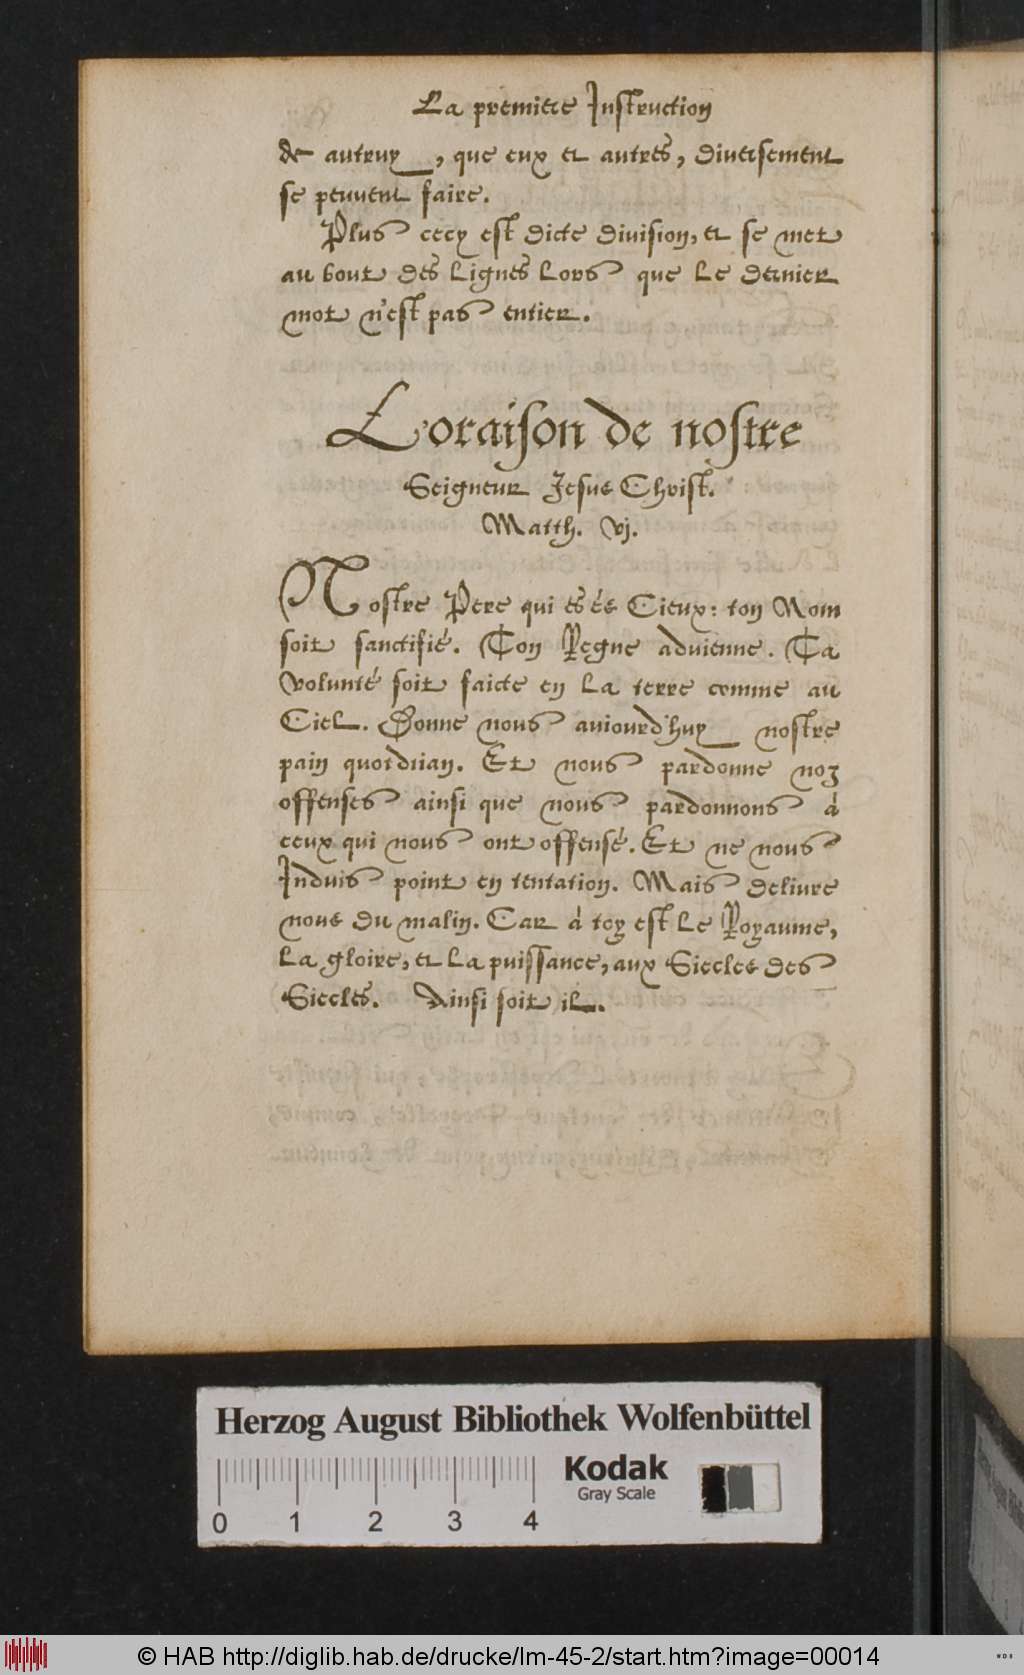 La premiere Instruction
de autruy, que eux et autres, diversement
se peuvent faire.
Plus cecy est dicte division, et se met
au bout des lignes lors que le dernier
mot n'est pas entier.
L'oraison de nostre
Seigneur Jesus Christ.
Matth. vj.
Nostre Pere qui es és Cieux: ton Nom
soit sanctifié. Ton Regne advienne. Ta
volunté soit faicte en la terre comme au
Ciel. Donne nous auiourd'huy nostre
pain quotdiian. Et nous pardonne noz
offenses ainsi que nous pardonnons à
ceux qui nous ont offensé. Et ne nous
Induis point en tentation. Mais delivre
nous du malin. Car à toy est le Royaume,
la gloire, et la puissance, aux Siecles des
Siecles. Ainsi soit il.
Herzog August Bibliothek Wolfenbüttel
Kodak
Gray Scale
0 1 2 3 4
© HAB http://diglib.hab.de/drucke/lm-45-2/start.htm?image=00014